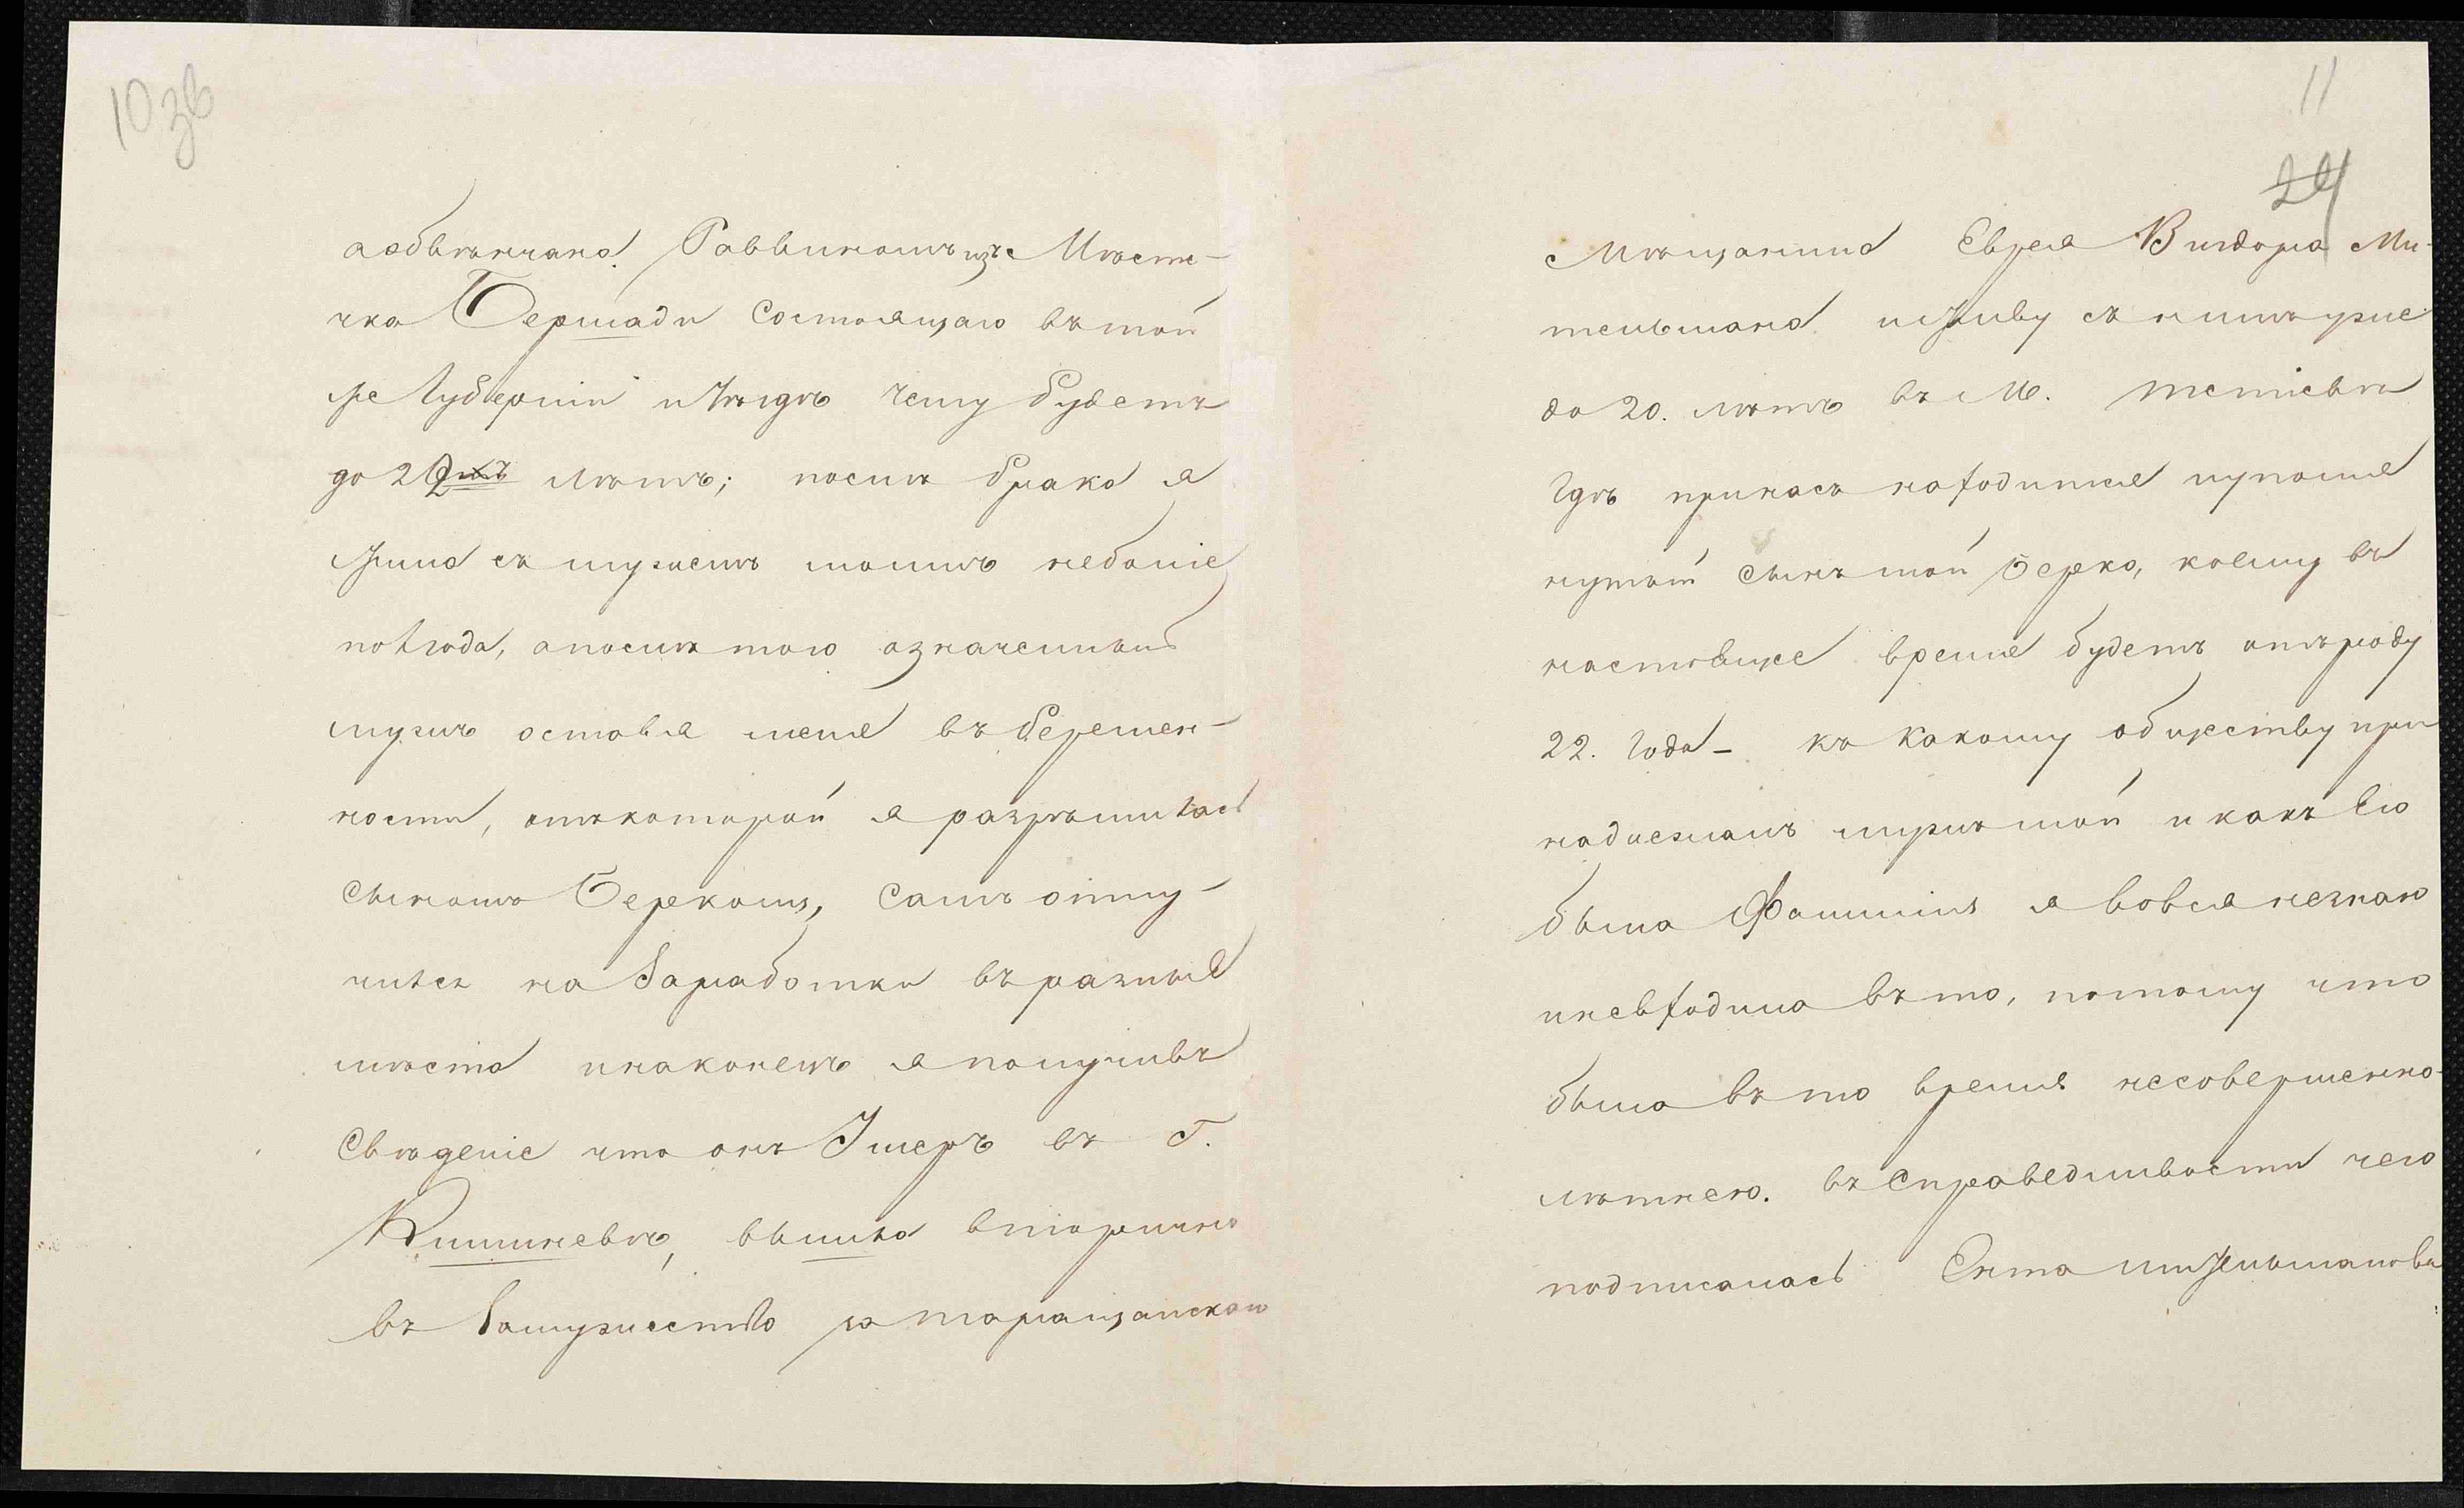 10 зв
аобвѣнчана Раввиномъ изъ Мѣсте-
чка Бершади состоящаго въ той
же Губерніи и уѣздѣ чему будетъ
до 22 лѣтъ; послѣ брака я
жила съ мужемъ моимъ неболіе
полгода, апослѣ того означенный
мужъ оставя меня въ беремен-
ности, откоторой я разрѣшилась
сыномъ Берекомъ, самъ отлу-
чился на Заработки въ разные
мѣста инаконецъ я получивъ
Свѣденіе что онъ Умеръ въ Г.
Кишиневѣ, вышла вторично
въ Замужество за таращанского
11
24
Мѣщанина Еврея Вигдора Ми-
тельмана и живу съ нимъ уже
до 20. лѣтъ въ М. тетіевѣ
Гдѣ принасъ находится иупомя
нутый сынъ мой Берко, коему въ
настоящее время будетъ отъ роду
22. Года - къ какому обществу при
надлежалъ мужъ мой и какъ Его
была Фамилія я вовся незнаю
иневходила въ то, потому что
была въ то время несовершенно-
лѣтнею. въ Справедливости чего
подписалась Ента митжельманова